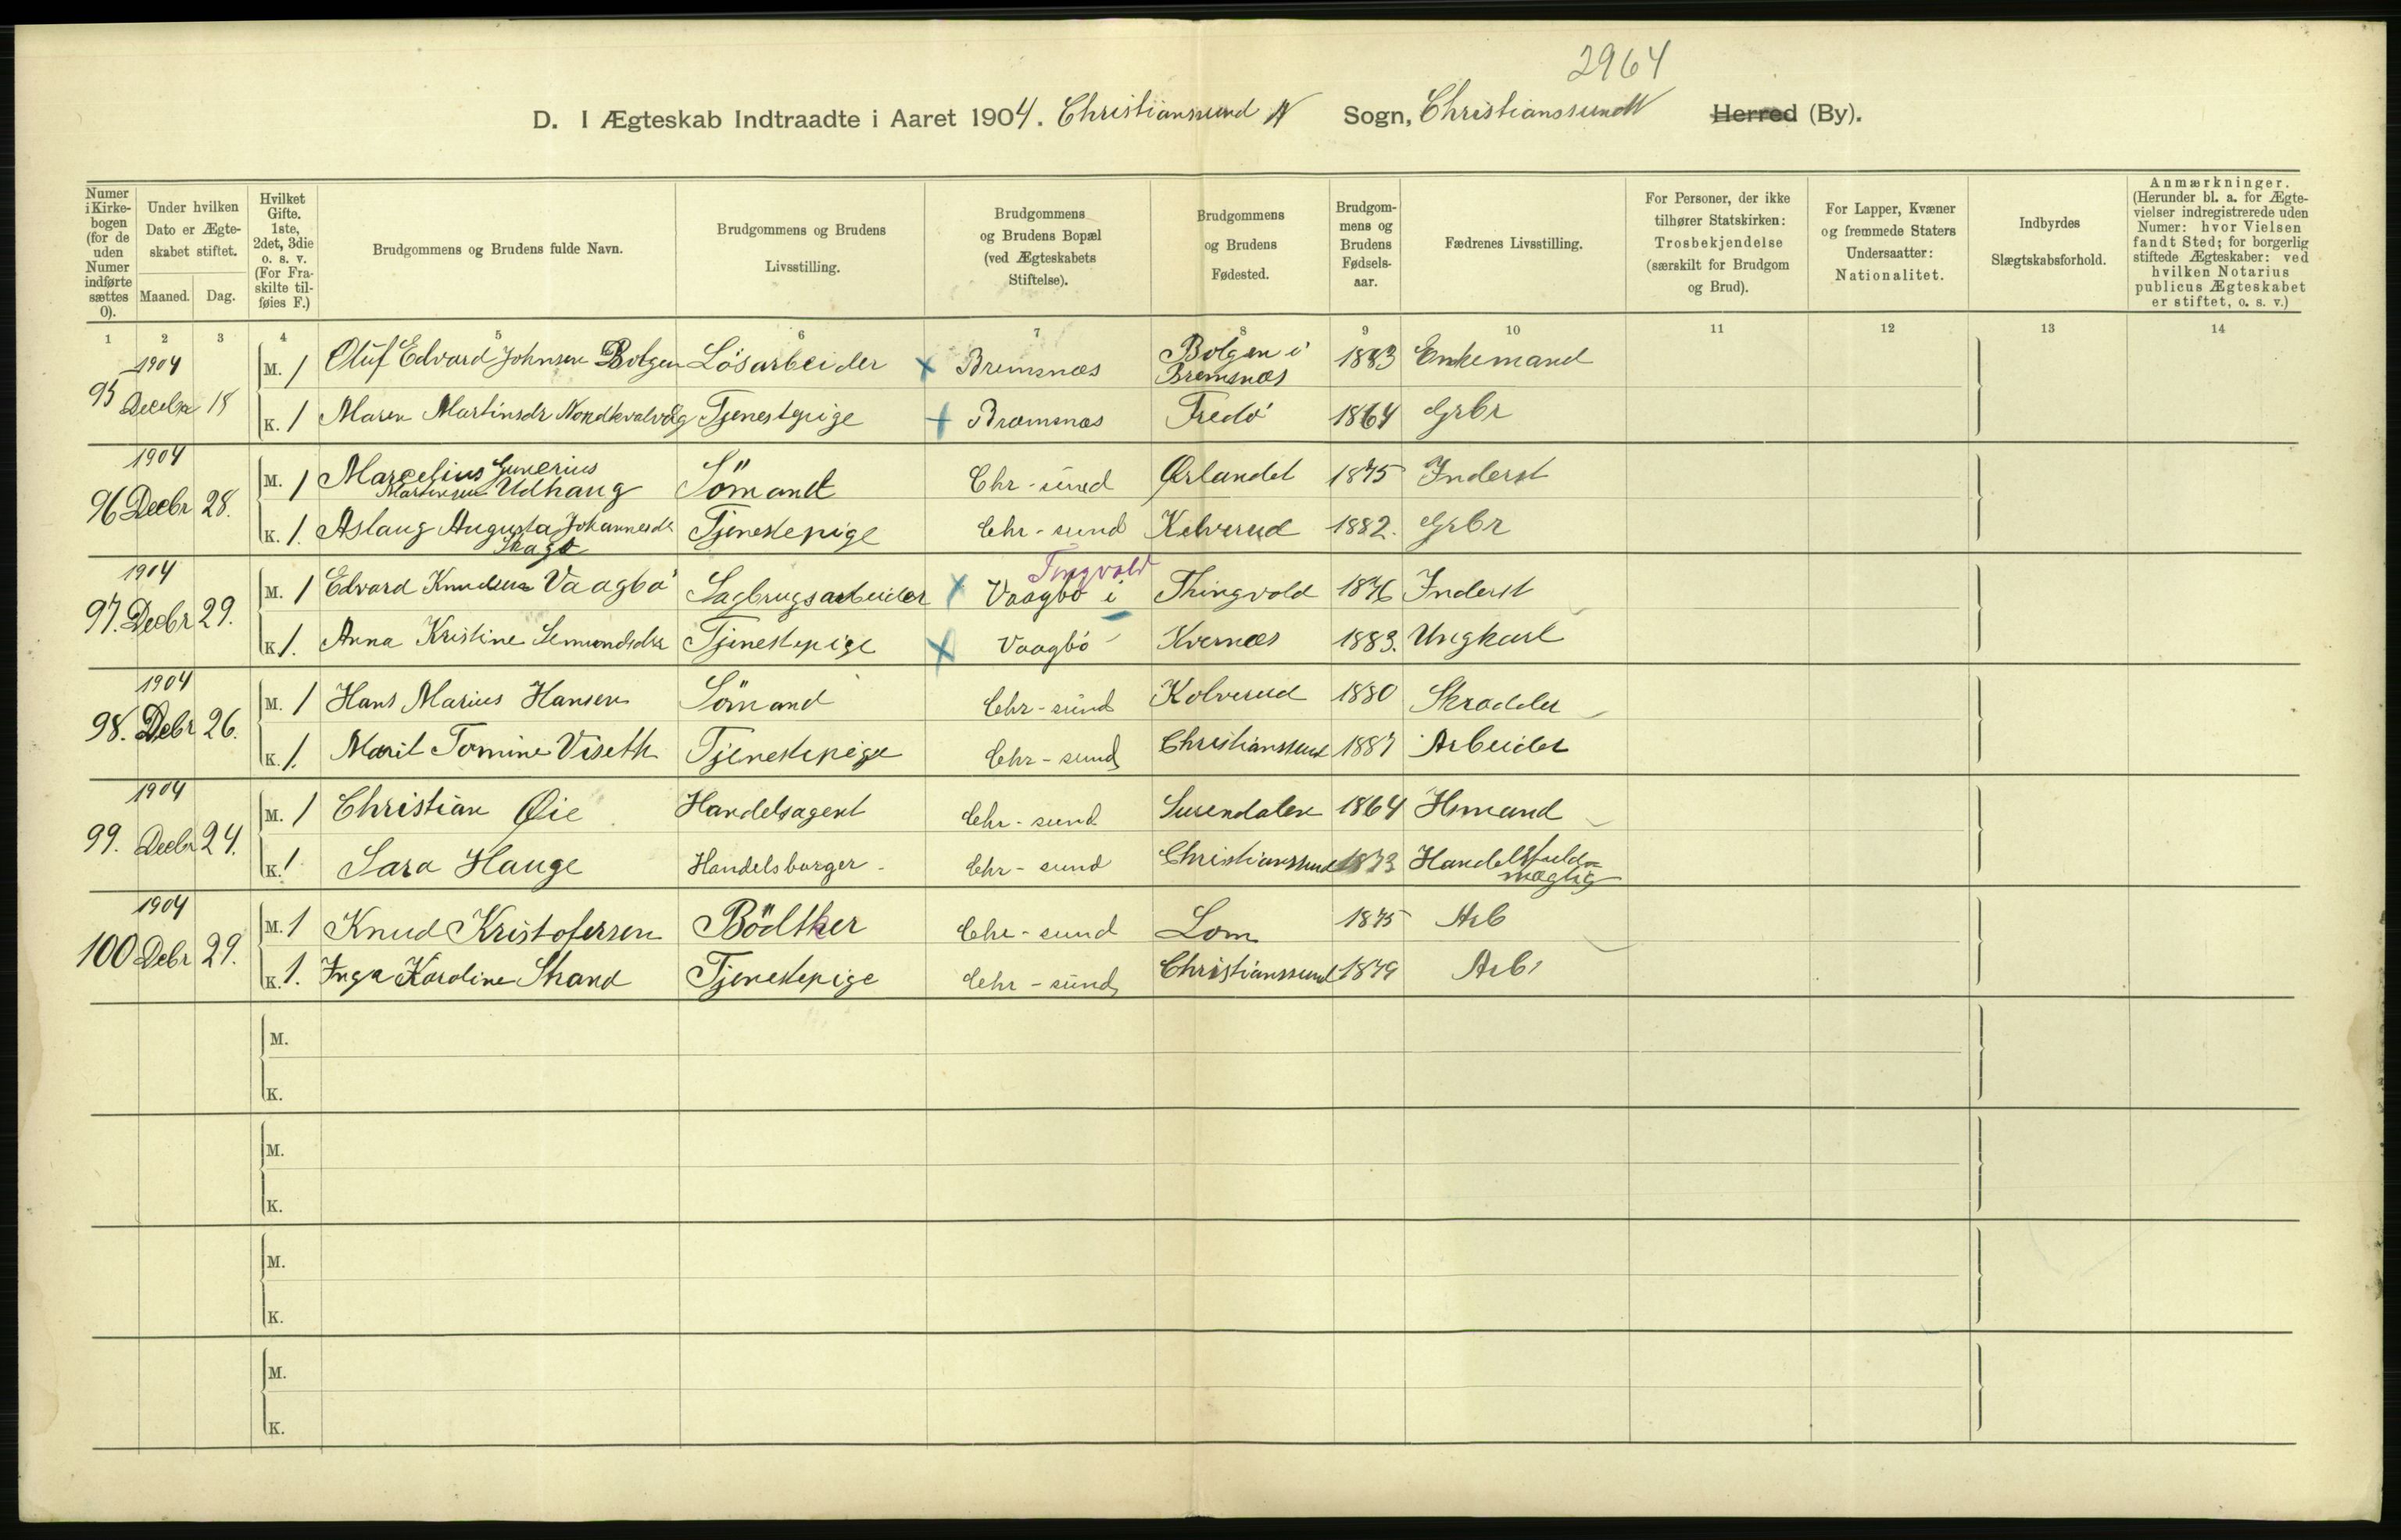 2964
D. I Ægteskab Indtraadte i Aaret 1904. Christianssund N Sogn, Christianssund N Herred (By).
Numer i Kirkebogen (for de uden Numer indførte sættes 0). Under hvilken Dato er Ægteskabet stiftet. Maaned. Dag. Hvilket Gifte. 1ste, 2det, 3die o. s. v. (For Fraskilte tilføies F.) Brudgommens og Brudens fulde Navn. Brudgommens og Brudens Livsstilling. Brudgommens og Brudens Bopæl (ved Ægteskabets Stiftelse). Brudgommens og Brudens Fødested. Brudgommens og Brudens Fødselsaar. Fædrenes Livsstilling. For Personer, der ikke tilhører Statskirken: Trosbekjendelse (særskilt for Brudgom og Brud). For Lapper, Kvæner og fremmede Staters Undersaatter: Nationalitet. Indbyrdes Slægtskabsforhold. Anmærkninger. (Herunder bl. a. for Ægtevielser indregistrerede uden Numer: hvor Vielsen fandt Sted; for borgerlig stiftede Ægteskaber: ved hvilken Notarius publicus Ægteskabet er stiftet, o. s. v.)
1 2 3 4 5 6 7 8 9 10 11 12 13 14
1904
95 Decbr 18 M. 1 Oluf Edvard Johnsen Bolgen Lösarbeider x Bremsnæs Bolgen i Bremsnæs 1883 Enkemand
K. 1 Maren Martinsdr Nordkvalvåg Tjenestepige + Bræmsnæs Fredö 1864 Grbr
1904
96 Decbr 28. M. 1 Marcelius Gunerius Martinsen Udhaug Sömand Chr-sund Ørlandet 1875 Inderst
K. 1. Aslaug Augusta Johannesdr Skagö Tjenestepige Chr-sund Kolverud 1882. Grbr
1904
97. Decbr 29. M. 1 Edvard Knudsen Vaagbö Sagbrugsarbeider x Vaagbö i Tingvold Thingvold 1876 Inderst
K. 1. Anna Kristine Semundsdtr Tjenestepige x Vaagbö Kvernæs 1883. Ungkarl
1904
98. Debr 26. M. 1 Hans Marius Hansen Sömand Chr-sund Kolverud 1880 Skrædder
K. 1. Marit Tomine Viseth Tjenestepige Chr-sund Christianssund 1887 Arbeider
1904
99. Decbr 24. M. 1 Christian Øie Handelsagent Chr-sund Surendalen 1864 Hmand
K. 1 Sara Hauge Handelsborger Chr-sund Christianssund 1873 Handelsfuldmægtig
1904
100 Debr 29. M. 1 Knud Kristofersen Bödtker Chr-sund Lom 1875 Arb
K. 1. Inga Karoline Strand Tjenestepige Chr-sund Christianssund 1879 Arb.
M.
K.
M.
K.
M.
K.
M.
K.